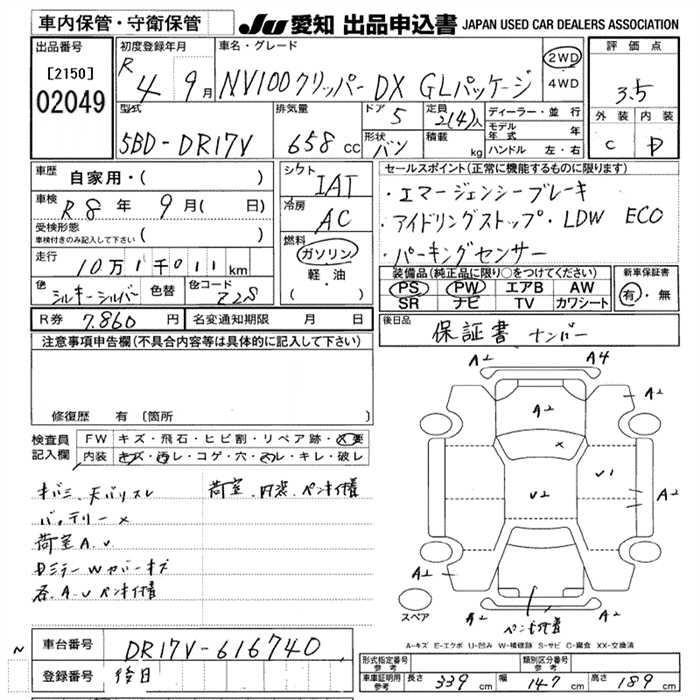 車内保管・守衛保管
JU 愛知 出品申込書 JAPAN USED CAR DEALERS ASSOCIATION
出品番号
[2150]
02049
初度登録年月
R 4 9月
車名・グレード
NV100クリッパー DX GLパッケージ
2WD
4WD
評価点
3.5
外装 内装
C D
型式
5BD-DR17V
排気量
658 cc
ドア 5
形状 バン
定員 2(4)人
積載 kg
ディーラー・並行
モデル年式 年
ハンドル 左・右
車歴
自家用・( )
車検
R 8 年 9 月( 日)
受検形態
車検付きのみ記入して下さい ( )
走行
10万1千011km
色 シルキーシルバー 色替 色コード Z2S
シフト
IAT
冷房
AC
燃料
ガソリン
軽・油
( )
セールスポイント(正常に機能するものに限ります)
・エマージェンシーブレーキ
・アイドリングストップ・LDW ECO
・パーキングセンサー
装備品(純正品に限り○をつけてください)
PS PW エアB AW
SR ナビ TV カワシート
新車保証書
有・無
R券 7,860 円 名変通知期限 月 日
後日品
保証書 ナンバー
注意事項申告欄(不具合内容等は具体的に記入して下さい)
修復歴 有〔箇所
検査員記入欄
FW キズ・飛石・ヒビ割・リペア跡・X要
内装 キズ・汚レ・コゲ・穴・スレ・キレ・破レ
バッテリー×
荷室A.U
荷室、内装、ペンキ付着
A2 A4
A2
A2
×
V1
V2
A2
A2
A2
A2
ペンキ付着
スペア
A-キズ E-エクボ U-凹み W-補修跡 S-サビ C-腐食 XX-交換済
車台番号 DR17V-616740
登録番号 後日
形式指定番号 参考
類別区分番号 参考
車庫証明用 参考 長さ 339 cm 幅 147 cm 高さ 189 cm